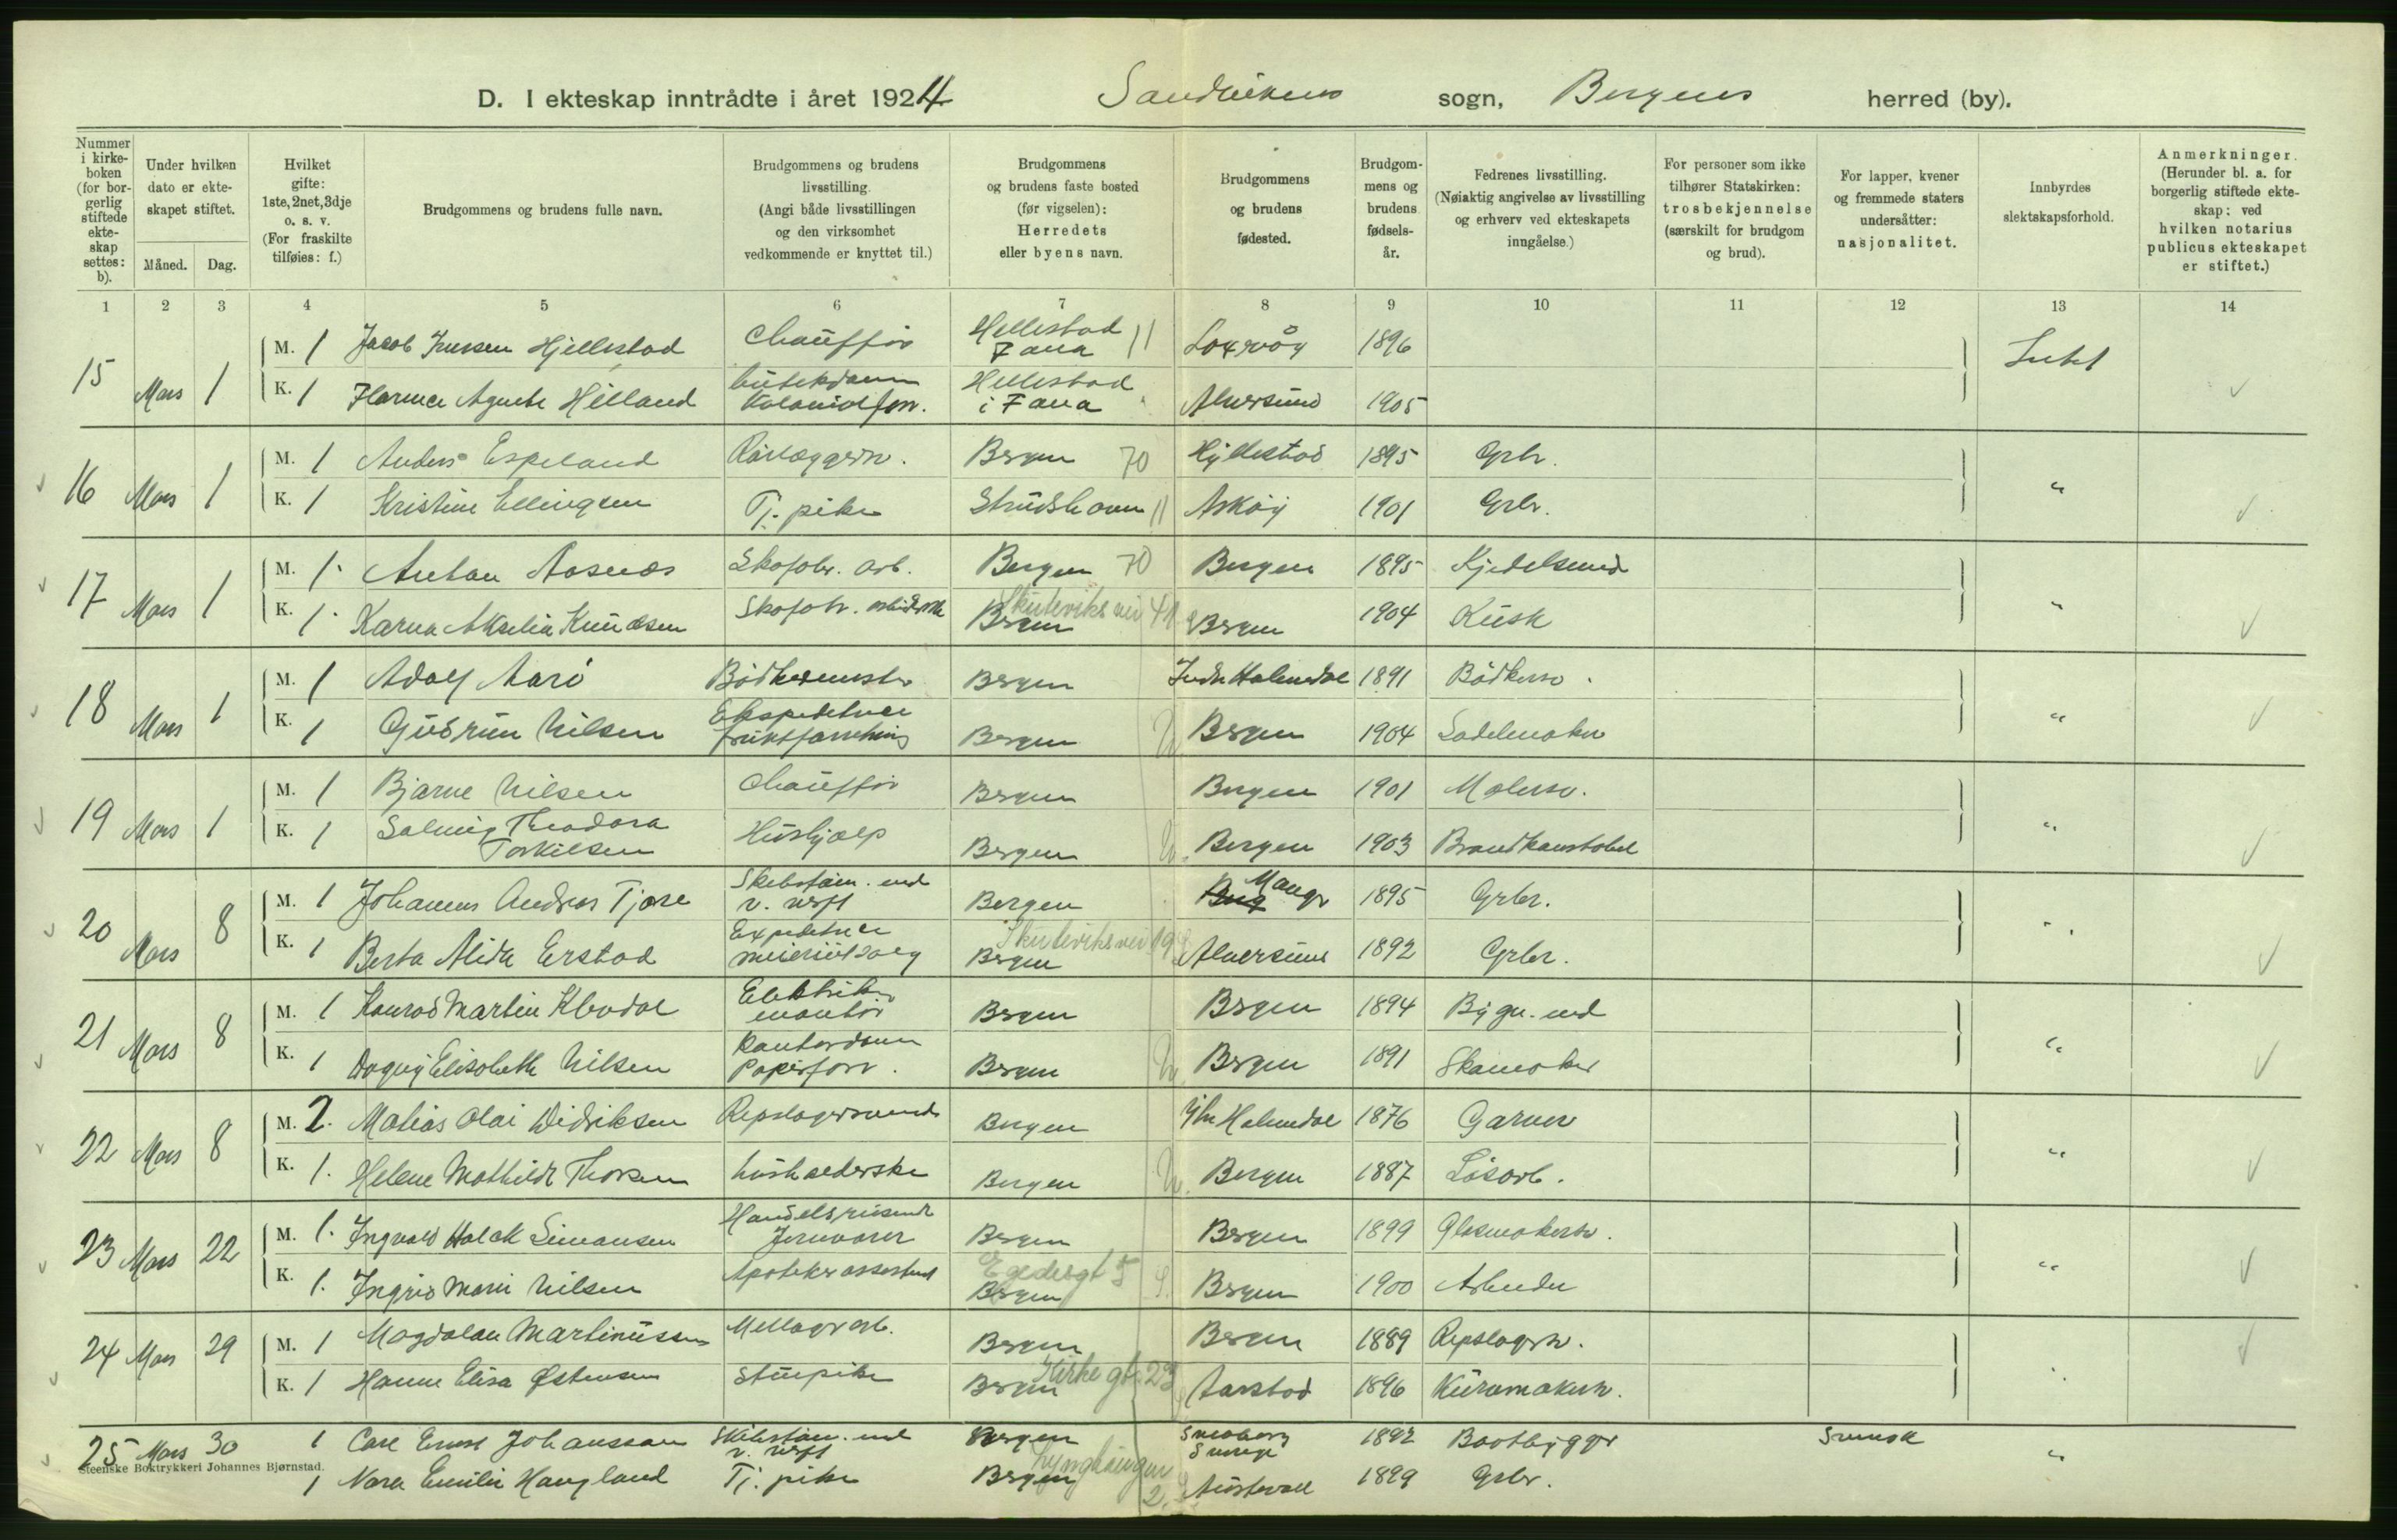 D. I ekteskap inntrådte i året 1924 Sandvikens sogn, Bergens herred (by).
Nummer i kirkeboken (for borgerlig stiftede ekteskap settes: b).
Under hvilken dato er ekteskapet stiftet.
Måned. Dag.
Hvilket gifte: 1ste, 2net, 3dje o. s. v. (For fraskilte tilføies: f.)
Brudgommens og brudens fulle navn.
Brudgommens og brudens livsstilling. (Angi både livsstillingen og den virksomhet vedkommende er knyttet til.)
Brudgommens og brudens faste bosted (før vigselen): Herredets eller byens navn.
Brudgommens og brudens fødested.
Brudgommens og brudens fødselsår.
Fedrenes livsstilling. (Nøiaktig angivelse av livsstilling og erhverv ved ekteskapets inngåelse.)
For personer som ikke tilhører Statskirken: trosbekjennelse (særskilt for brudgom og brud).
For lapper, kvener og fremmede staters undersåtter: nasjonalitet.
Innbyrdes slektskapsforhold.
Anmerkninger. (Herunder bl. a. for borgerlig stiftede ekteskap: ved hvilken notarius publicus ekteskapet er stiftet.)
1 2 3 4 5 6 7 8 9 10 11 12 13 14
15 Mars 1 M. 1 Jacob Hjellestad Chauffør Hellestad Fana 11 1896 Intet
K. 1 Agnete Helland Hellestad i Fana Alversund 1905
16 Mars 1 M. 1 Anders Espeland Rørlæggersv. Bergen 70 Hyllestad 1895 Grbr. "
K. 1 Kristine Ellingsen Tj. pike Strudshavn 11 Askøy 1901 Grbr.
17 Mars 1 M. 1. Anton Aasnæs Skofabr. arb. Bergen 70 Bergen 1895 Kjedelsmed "
K. 1. Karna Akselia Knudsen Skofabr. arbeiderske Skuteviksvei 41 Bergen Bergen 1904 Kusk
18 Mars 1 M. 1 Adolf Aarø Bødkermester Bergen Indre Holmedal 1891 Bødkersv. "
K. 1 Gudrun Nilsen Ekspeditrice fruktforretning Bergen Bergen 1904 Sadelmaker
19 Mars 1 M. 1 Bjarne Nilsen Chauffør Bergen Bergen 1901 Malersv. "
K. 1 Solveig Theodora Torkilsen Hushjælp Bergen Bergen 1903 Brandkonstabel
20 Mars 8 M. 1 Johannes Andreas Tjore Skibstøm. md v. verft Bergen Manger 1895 Grbr. "
K. 1 Berta Alida Erstad Expeditrice meieriutsalg Skuteviksvei 19 Bergen Alversund 1892 Grbr.
21 Mars 8 M. 1 Konrad Martin Klovdal Elektriker montør Bergen Bergen 1894 Bygn. md "
K. 1 Dagny Elisabeth Nilsen Kontordame Papirforr. Bergen Bergen 1891 Skomaker
22 Mars 8 M. 2. Matias Olai Didriksen Repslagersvend Bergen Ytre Holmedal 1876 Garver "
K. 1. Helene Mathilde Thorsen husholderske Bergen Bergen 1887 Løsarb.
23 Mars 22 M. 1. Ingvald Simonsen Handelsreisende Jernvarer Bergen Bergen 1899 Glasmakersv. "
K. 1. Ingrid Marie Nilsen Apotekerassistent Egedesgt 5 Bergen Bergen 1900 Arbeider
24 Mars 29 M. 1 Magdalon Martinussen Møllearb. Bergen Bergen 1889 Repslagersv.
K. 1 Hanne Elisa Østensen Stuepike Kirkegt. 23 Bergen Aarstad 1896 Kurvmakersv.
25 Mars 30 1 Carl Ernst Johansson Skibstøm. md v. verft Bergen Sverige 1892 Baatbygger Svensk "
1 Nora Emilie Haugland Tj. pike Lynghaugen 2 Bergen Austevoll 1899 Grbr.
Steenske Boktrykkeri Johannes Bjørnstad.